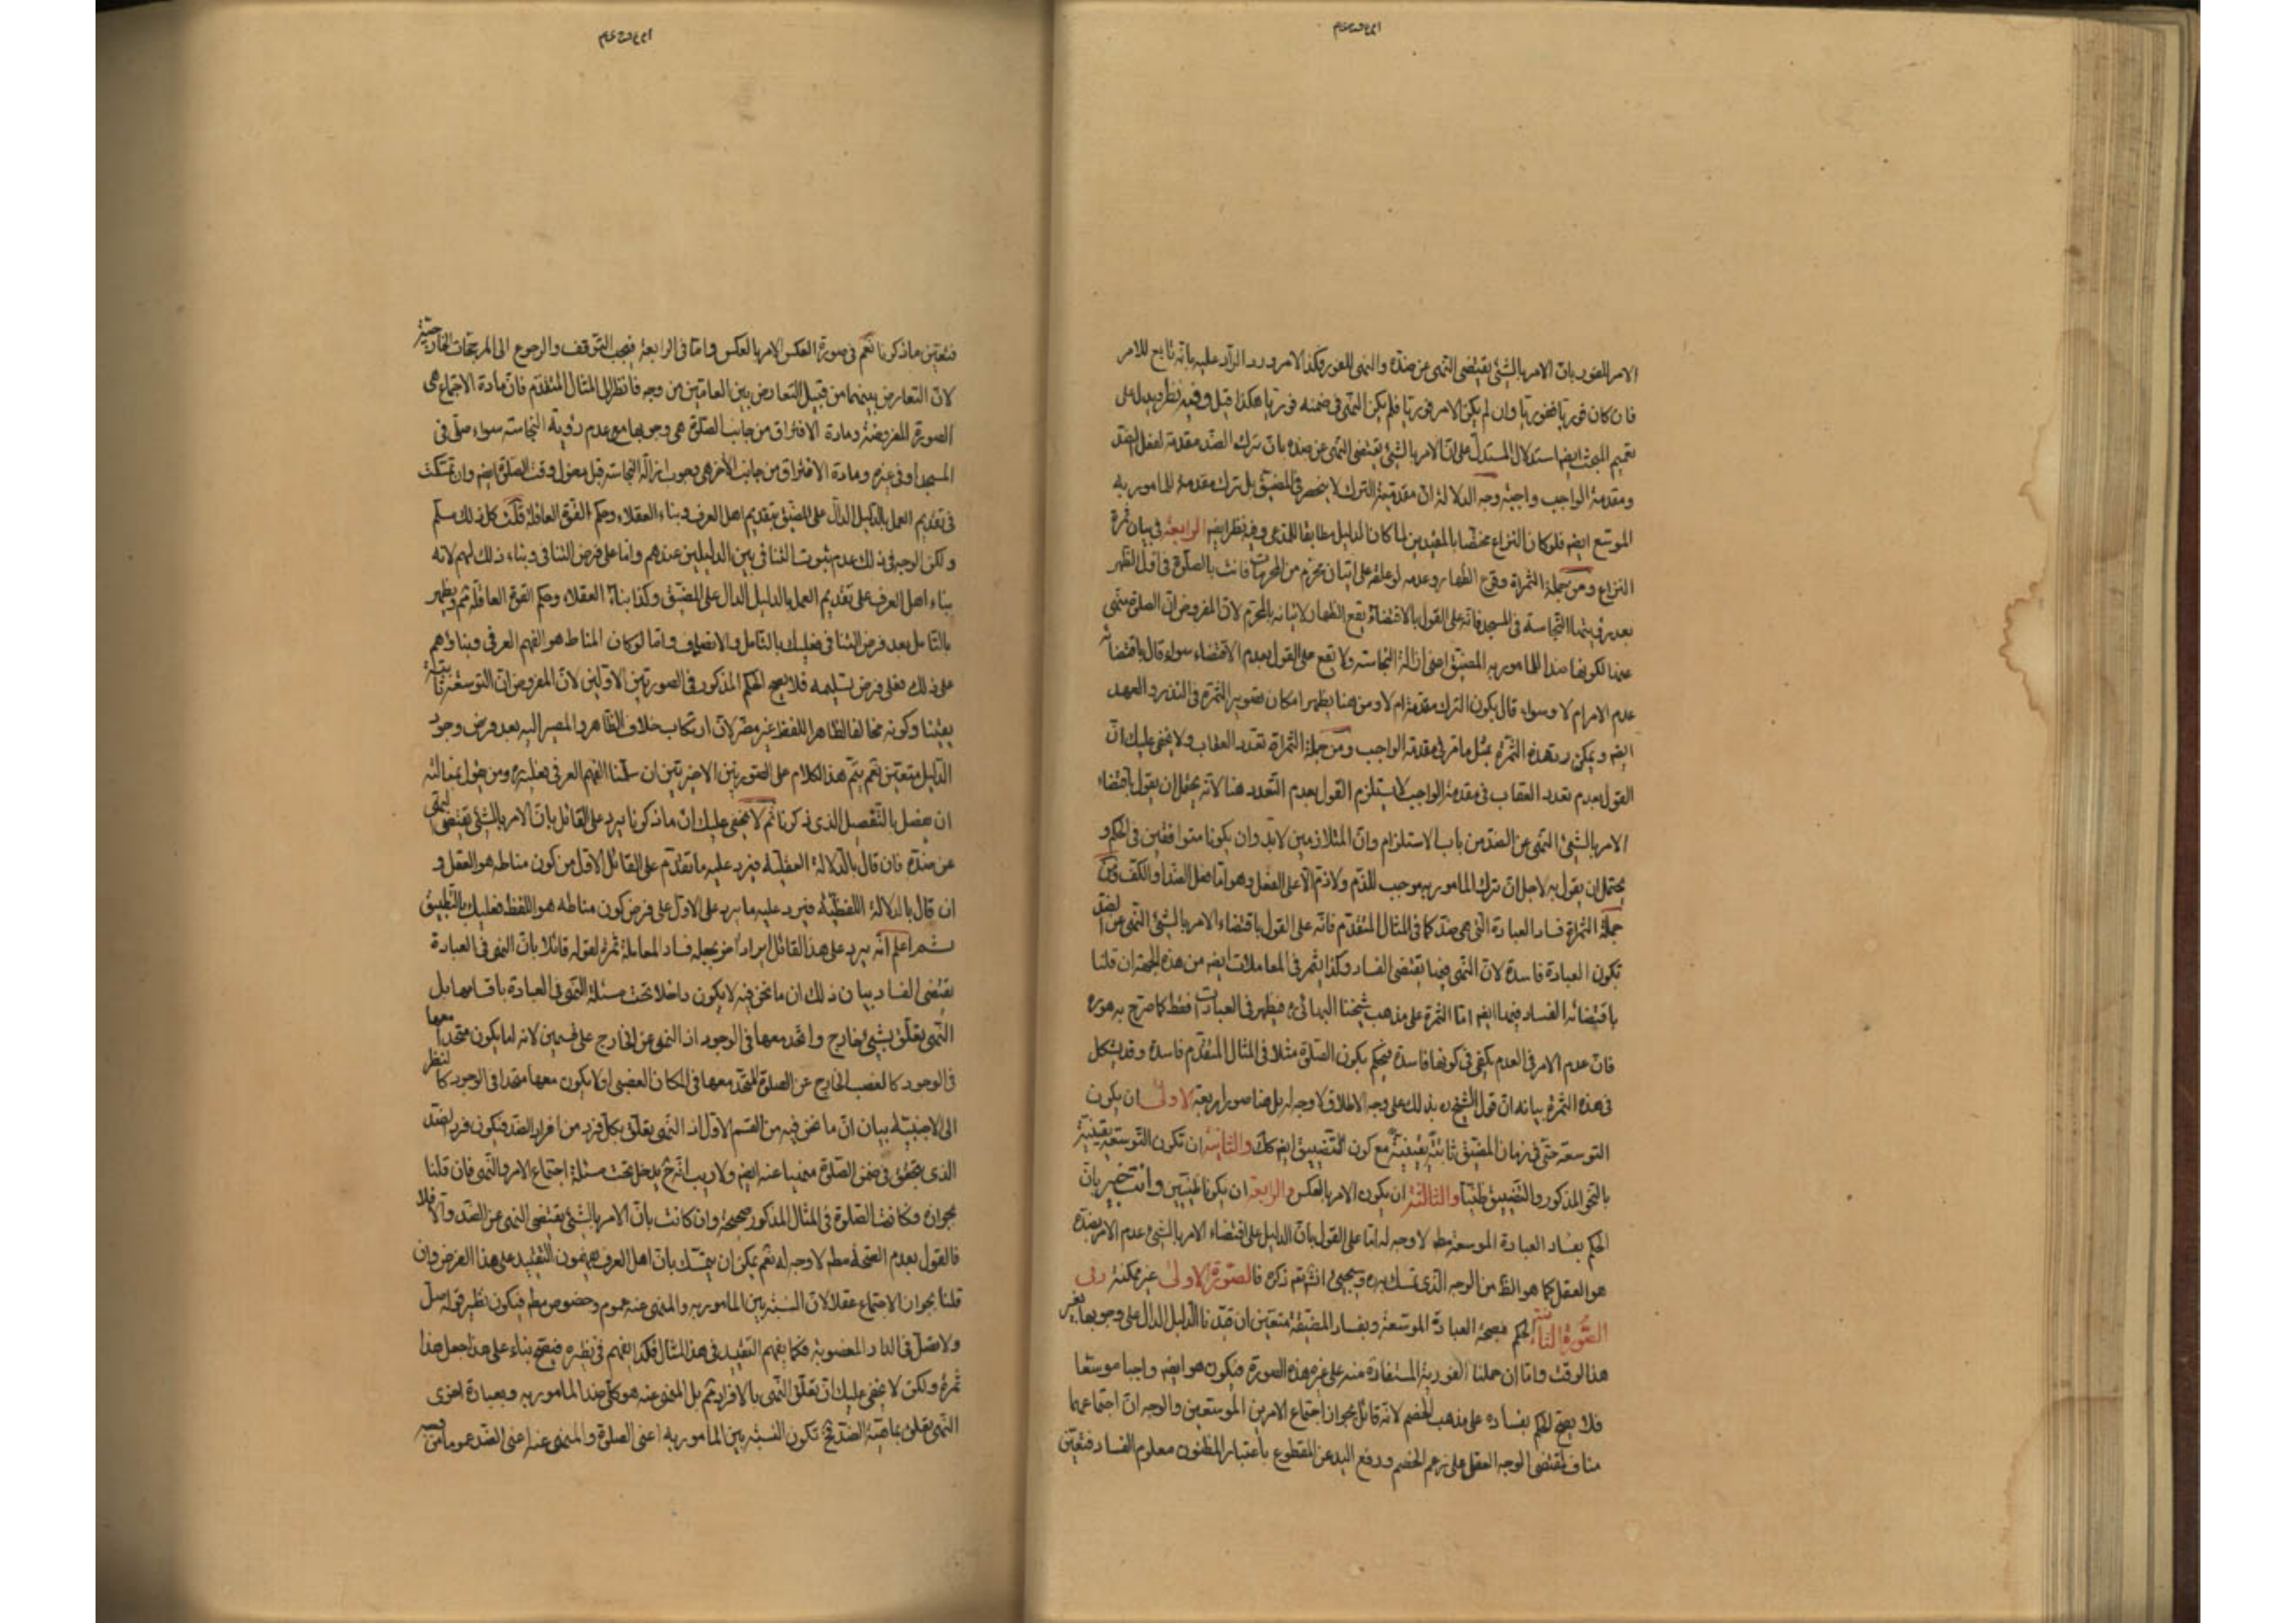 الامر للفور بان الامر بالشئ يقتضى النهى عن ضده والنهى للفور فكذا الامر ورد الراد عليه بانه تابع للامر
فان كان فوريا ففوريا وان لم يكن الامر فوريا فلم يكن النهى فى ضمنه فوريا هكذا قيل وفيه نظر ويدل على
تعميم المبحث ايضا استدلال المستدل على ان الامر بالشئ يقتضى النهى عن ضده بان ترك الضد مقدمة لفعل الضد
ومقدمة الواجب واجبة وجه الدلالة ان مقدمية الترك لا ينحصر فى المضيق بل ترك مقدمة للمامور به
الموسع ايضا فلو كان النزاع مختصا بالمقيدين لما كان الدليل مطابقا للمدعى وفيه نظر ايضا الرابعة فى بيان ثمرة
النزاع ومن جملة الثمراة وقوع الظهار وعدمه لو علقه على اتيان محرم من المحرمات فاتت بالصلوة فى اول الظهر
بعد رؤيتها النجاسة فى المسجد فانه على القول بالاقتضاء يقع الظهار لاتيانه بالمحرم لان المفروض ان الصلوة منهى
عنها لكونها ضدا للمامور به المضيق اعنى ازالة النجاسة ولا يقع على القول بعدم الاقتضاء سواء قال باقتضائه
عدم الامر ام لا وسواء قال بكون الترك مقدمة ام لا ومن هنا يظهر امكان تصوير الثمرة فى النذر والعهد
ايضا ويمكن رد هذه الثمرة بمثل ما مر فى مقدمة الواجب ومن جملة الثمراة تعدد العقاب ولا يخفى عليك ان
القول بعدم تعدد العقاب فى مقدمة الواجب لا يستلزم القول بعدم التعدد هنا لانه يحتمل ان يقول باقتضاء
الامر بالشئ النهى عن الضد من باب الاستلزام وان المتلازمين لا بد وان يكونا متوافقين فى الحكم و
يحتمل ان يقول به لاجل ان ترك المامور به موجب للذم ولا ذم الا على الفعل وهو اما فعل الضد او الكف ومن
جملة الثمراة فساد العبادة التى هى ضد كما فى المثال المتقدم فانه على القول باقتضاء الامر بالشئ النهى عن الضد
تكون العبادة فاسدة لان النهى فيها يقتضى الفساد وكذا يثمر فى المعاملات ايضا من هذه الجهة ان قلنا
باقتضائه الفساد فيها ايضا اما الثمرة على مذهب شيخنا البهائى ره فيظهر فى العبادات فقط كما صرح به هو ره
فان عدم الامر فى العدم يكفى فى كونها فاسدة فيحكم بكون الصلوة مثلا فى المثال المتقدم فاسدة وقد يشكل
فى هذه الثمرة بيانه ان قول الشيخ ره بذلك على وجه الاطلاق لا وجه له بل هنا صور اربعة الاولى ان يكون
التوسعة حتى فى زمان المضيق ثابتة يقينية مع كون التضييق ايضا كك والثانية ان تكون التوسعة يقينية
بالنحو المذكور والتضييق ظنيا والثالثة ان يكون الامر بالعكس والرابعة ان يكونا ظنيين وانت خبير بان
الحكم بفساد العبادة الموسعة مط لا وجه له اما على القول بان الدليل على اقتضاء الامر بالشئ عدم الامر بضده
هو العقل كما هو الظ من الوجه الذى تمسك به ره وسيجيئ انشاء ذكره فالصورة الاولى غير ممكنة وفى
الصورة الثانية الحكم بصحة العبادة الموسعة وبفساد المضيقة متعين ان قيدنا الدليل الدال على وجوبها بغير
هذا الوقت واما ان حملنا الفورية المستفادة منه على غير هذه الصورة فيكون هو ايضا واجبا موسعا
فلا يصح الحكم بفساده على مذهب الخصم لانه قائل بجواز اجتماع الامرين الموسعين والوجه ان اجتماعهما
مناف لمقتضى الوجه العقلى على زعم الخصم ورفع اليد عن المقطوع باعتبار المظنون معلوم الفساد فتعين
فتعين ما ذكرنا نعم فى صورة العكس الامر بالعكس واما فى الرابعة فيجب التوقف والرجوع الى المرجحات الخارجية
لان التعارض بينهما من قبيل التعارض بين العامين من وجه فانظر الى المثال المتقدم فان مادة الاجتماع هى
الصورة المفروضة ومادة الافتراق من جانب الصلوة هى وجوبها مع عدم رؤية النجاسة سواء صلى فى
المسجد او فى غيره ومادة الافتراق من جانب الاخر هى وجوب ازالة النجاسة قبل دخول وقت الصلوة ايضا وان تمسكت
فى تقديم العمل بالدليل الدال على المضيق بتقديم اهل العرف وبناء العقلاء وحكم القوة العاقلة قلت كل ذلك مسلم
ولكن الوجه فى ذلك عدم ثبوت التنافى بين الدليلين عندهم واما على فرض التنافى وبناء ذلك لهم لانه
بناء اهل العرف على تقديم العمل بالدليل الدال على المضيق وكذا بناء العقلاء وحكم القوة العاقلة ثم ويظهر
بالتامل بعد فرض التنافى فعليك بالتامل والانصاف واما لو كان المناط هو الفهم العرفى وبناؤهم
على ذلك فعلى فرض تسليمه فلا يصح الحكم المذكور فى الصورتين الاوليين لان المفروض ان التوسعة ثابتة
يقينا وكونه مخالفا لظاهر اللفظ غير مضر لان ارتكاب خلاف الظاهر والمصير اليه بعد فرض وجود
الدليل متعين نعم يتم هذا الكلام على الصورتين الاخيرتين ان سلمنا الفهم العرفى
ان يفصل بالتفصيل الذى ذكرنا ثم لا يخفى عليك ان ما ذكرنا يرد على القائل بان الامر بالشئ يقتضى النهى
عن ضده فان قال بالدلالة العقلية فيرد عليه ما تقدم على القائل الاول من كون مناطه هو العقل و
ان قال بالدلالة اللفظية فيرد عليه ما يرد على الاول على فرض كون مناطه هو اللفظ فعليك بالتطبيق
ثم اعلم انه يرد على هذا القائل ايراد اخر يجعله فساد المعاملة ثمرة لقوله قائلا بان النهى فى العبادة
يقتضى الفساد بيان ذلك ان ما نحن فيه لا يكون داخلا تحت مسئلة النهى فى العبادة باقسامها بل
النهى يتعلق بشيئ خارج واتحد معها فى الوجود اذ النهى عن الخارج على قسمين لانه اما يكون متحدا معها
فى الوجود كالغصب الخارج عن الصلوة المتحد معها فى المكان الغصبى او لا يكون معها متحدا فى الوجود كالنظر
الى الاجنبية بيان ان ما نحن فيه من القسم الاول اذ النهى يتعلق بكل فرد من افراد الضد فيكون فرد الضد
الذى يتحقق فى ضمن الصلوة منهيا عنه ايضا ولا ريب انه ح يدخل تحت مسئلة اجتماع الامر والنهى فان قلنا
بجوازه فكانت الصلوة فى المثال المذكور صحيحة وان كانت بان الامر بالشئ يقتضى النهى عن الضد والا فلا
فالقول بعدم الصحة مط لا وجه له نعم يمكن ان يتمسك بان اهل العرف يفهمون التقييد على هذا الفرض وان
قلنا بجواز الاجتماع عقلا لان النسبة بين المامور به والمنهى عنه عموم وخصوص مط فيكون نظير قوله صل
ولا تصل فى الدار المغصوبة فكما يفهم التقييد فى هذا المثال فكذا يفهم فى نظيره فيصح بناء على هذا جعل هذا
ثمرة ولكن لا يخفى عليك ان تعلق النهى بالافراد ثم بل المنهى عنه هو كلى ضد المامور به وبعبارة اخرى
النهى يتعلق بماهية الضد فح تكون النسبة بين المامور به اعنى الصلوة والمنهى عنه اعنى الضد عموما من وجه